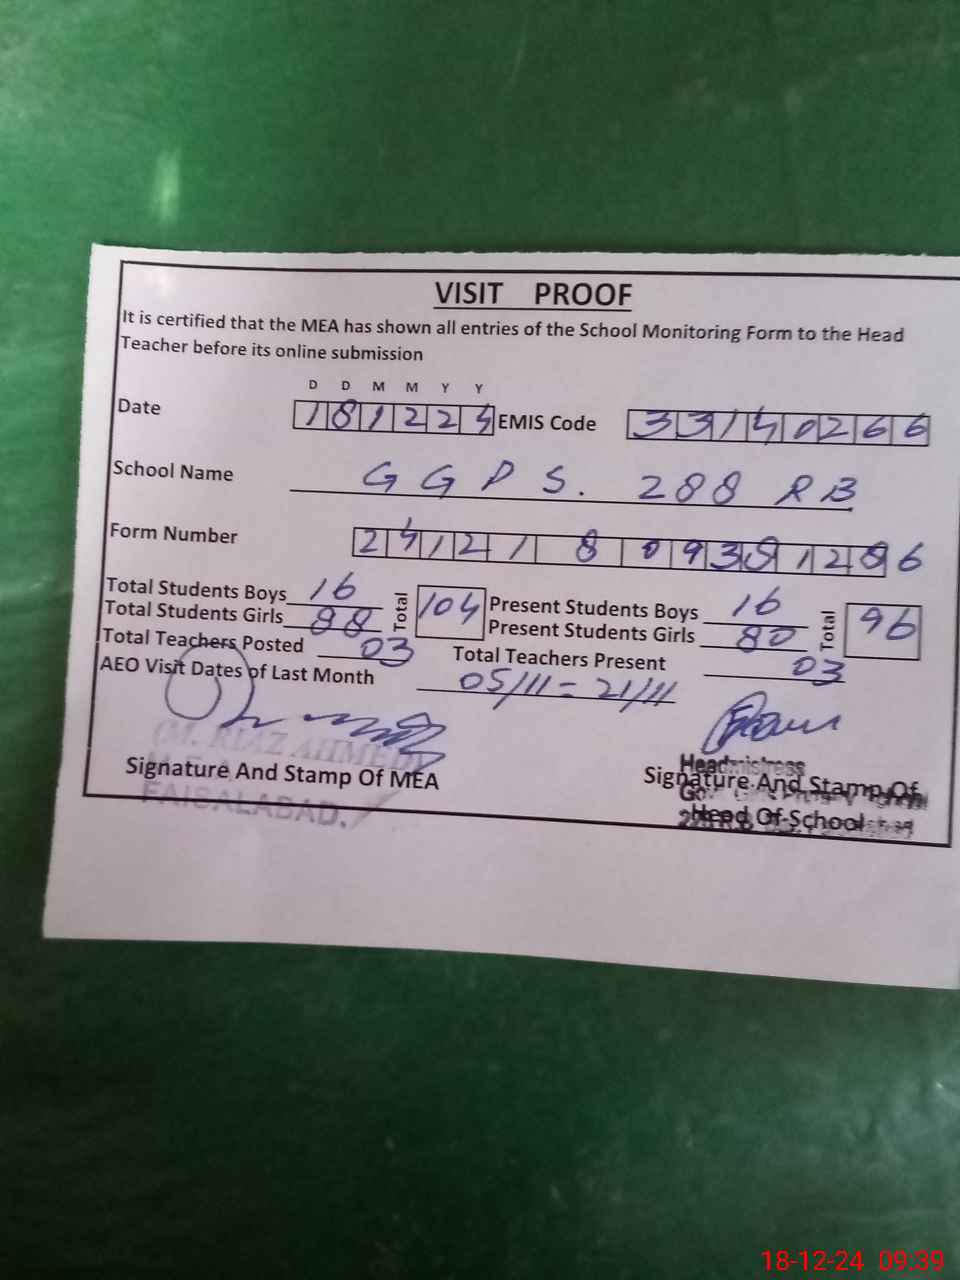 VISIT PROOF
It is certified that the MEA has shown all entries of the School Monitoring Form to the Head
Teacher before its online submission
D D M M Y Y
Date 181224 EMIS Code 33140266
School Name GGPS. 288 RB
Form Number
Total Students Boys 16 Total 104 Present Students Boys 16 Total 96
Total Students Girls 88 Present Students Girls 80
Total Teachers Posted 03 Total Teachers Present 03
AEO Visit Dates of Last Month 05/11 = 21/11
(M. RIAZ AHMED)
Signature And Stamp Of MEA
FAISALABAD.
Headmistress
Signature And Stamp Of
Head Of School
18-12-24 09:39